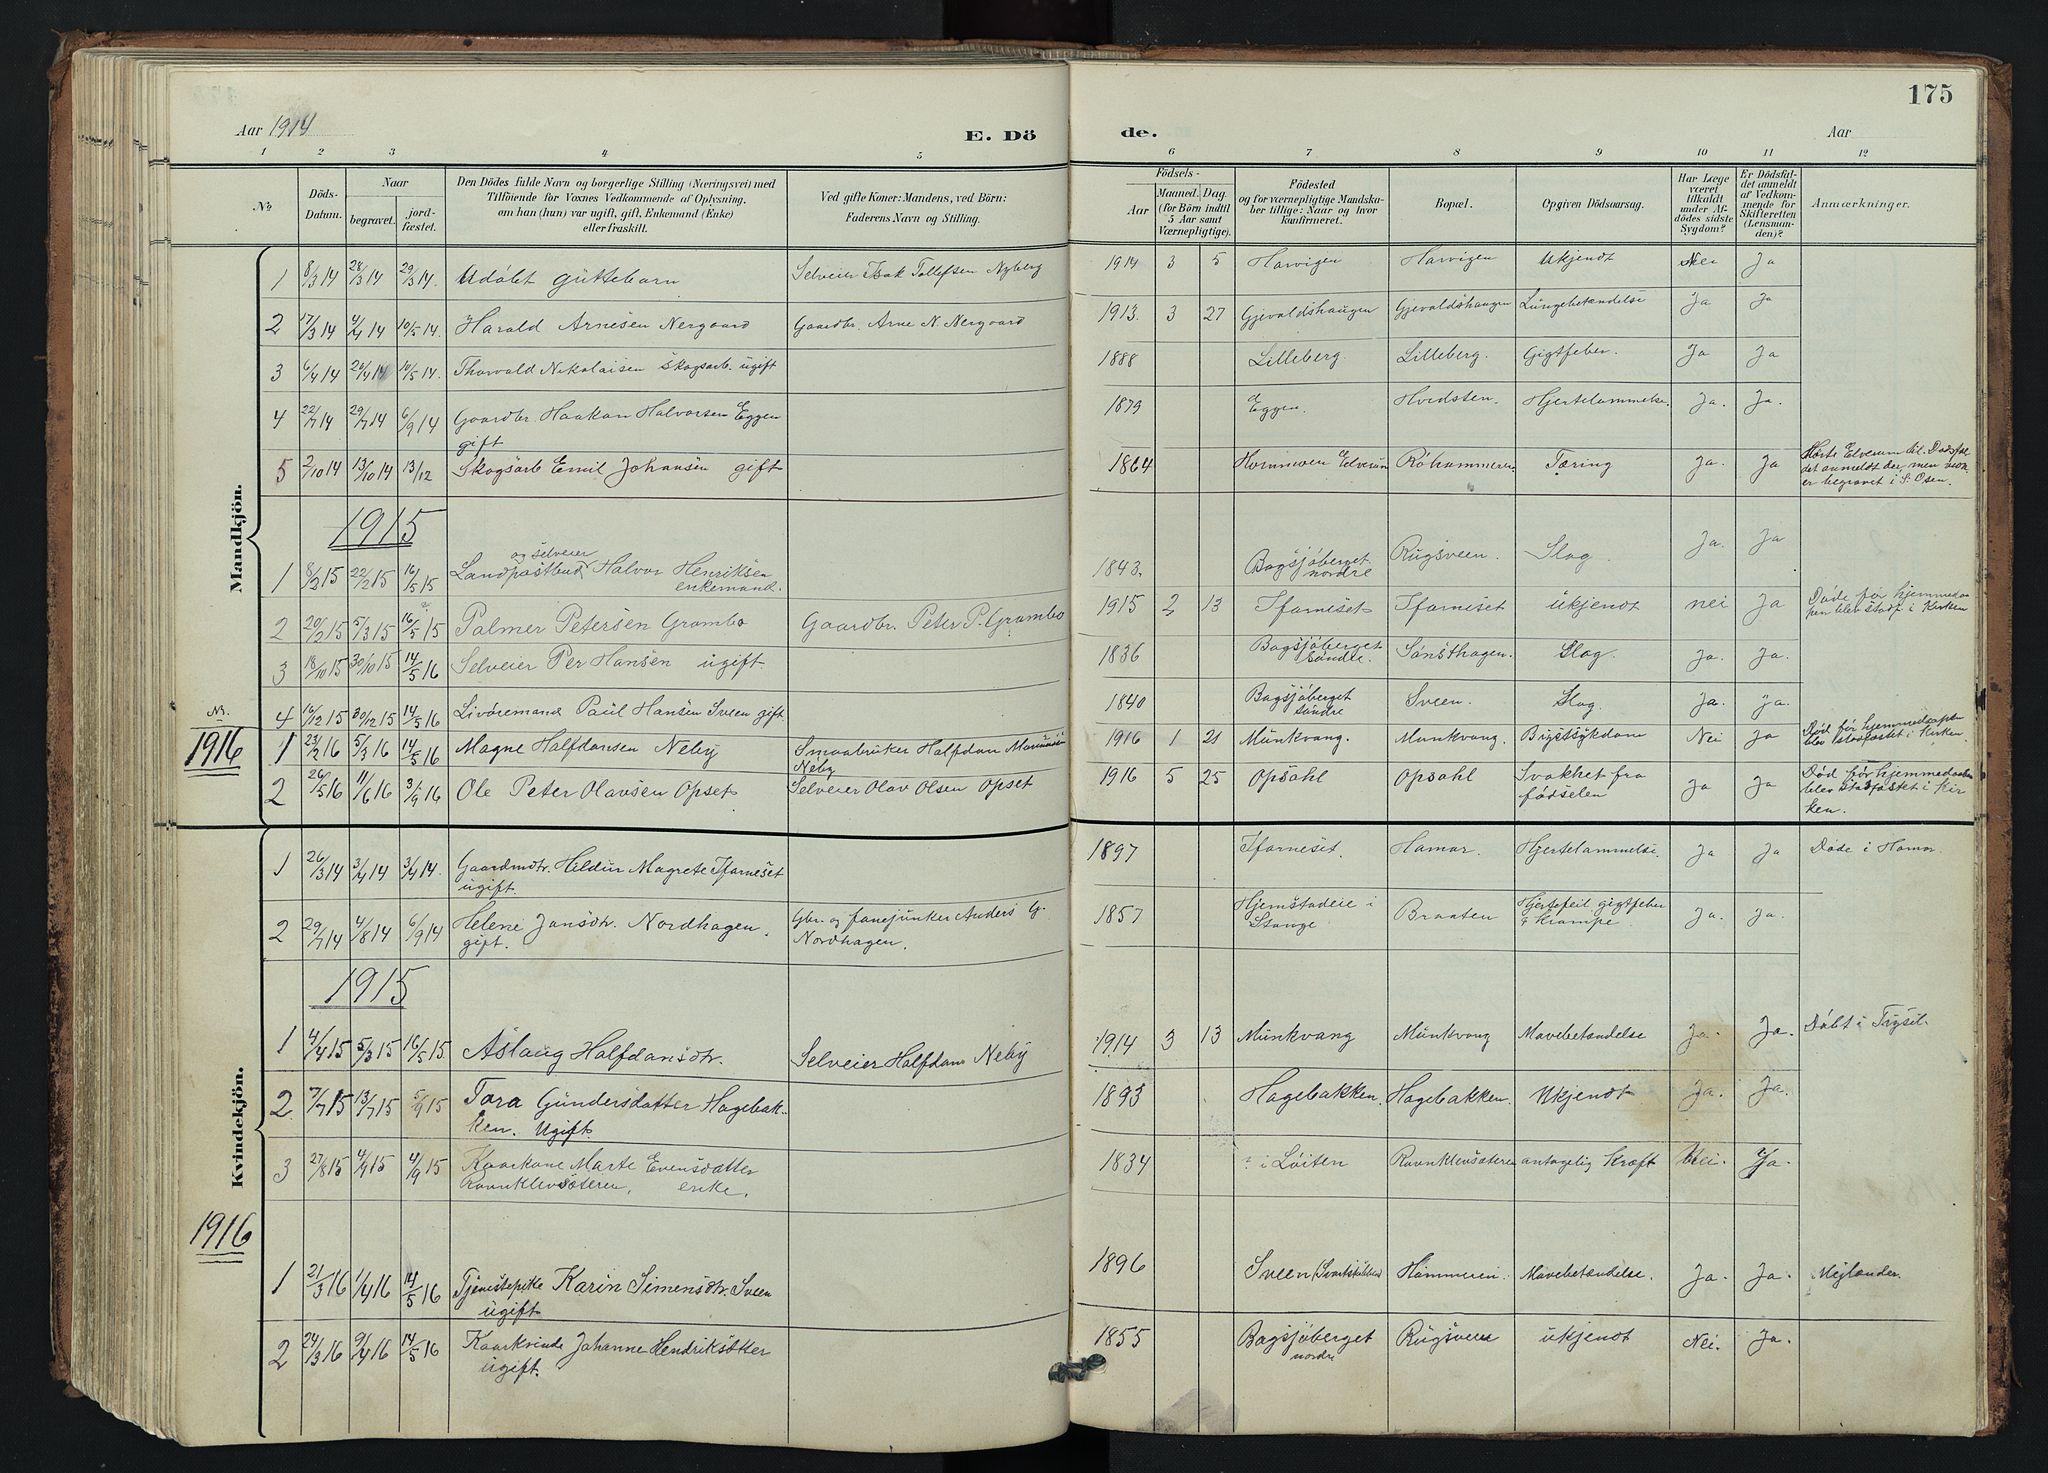 Aar 1914
E. Dö
de.
Aar
175
1 2 3 4 5 6 7 8 9 10 11 12
No
Döds-Datum.
Naar
begravet.
jordfæstet.
Den Dödes fulde Navn og borgerlige Stilling (Næringsvei) med
Tilföiende for Voxnes Vedkommende af Oplysning,
om han (hun) var ugift, gift, Enkemand (Enke)
eller fraskilt.
Ved gifte Koner: Mandens, ved Börn:
Faderens Navn og Stilling.
Födsels-
Aar
Maaned. Dag.
(for Börn indtil
5 Aar samt
Værnepligtige).
Födested
og for værnepligtige Mandskaber tillige: Naar og hvor
konfirmeret.
Bopæl.
Opgiven Dödsaarsag.
Har Læge
været
tilkaldt
under Afdödes sidste
Sygdom?
Er Dödsfaldet anmeldt
af Vedkommende for
Skifteretten
(Lensmanden)?
Anmærkninger.
Mandkjön.
1 8/3 14 28/3 14 29/3 14. Udøbt Guttebarn Selveier Isak Tollefsen Nyberg 1914 3 5 Harvigen Harvigen Ukjendt Nei Ja
2 17/3 14 4/4 14 10/5 14. Harald Arnesen Nergaard Gaardbr. Arne N. Nergaard 1913. 3 27 Gjevaldshaugen Gjevaldshaugen Lungebetændelse Ja Ja
3 6/4 14 20/4 14 10/5 14. Thorvald Nikolaisen Skogsarb. ugift 1888 Lilleberg. Lilleberg. Gigtfeber. Ja Ja
4 22/7 14 29/7 14 6/9 14 Gaardbr. Haakan Halvorsen Eggen gift 1879 Eggen. Hvidsten. Hjertelammelse. Ja. Ja.
5 2/10 14 13/10 14 13/12 Skogsarb Emil Johansen gift 1864 Hornmoen Elverum Röhammeren Tæring Ja. Ja Hörte Elverum til. Dødsfaldet anmeldt der, men
er begravet i S. Osen.
1915
1 8/2 15 22/2 15 16/5 15 Landpostbud og selveier Halvor Henriksen enkemand. 1843, Bagsjøberget nordre Rugsveen. Slag. Ja. Ja
2 20/2 15 5/3 15 16/5 15 Palmer Petersen Grambo Gaardbr. Peter P. Grambo 1915 2 13 Ifarneset Ifarneset ukjendt nei Ja Døde før hjemmedaapen blev stadf. i Kirken
3 18/10 15 30/10 15 14/5 16 Selveier Per Hansen ugift. 1836 Bagsjøberget søndre. Sønsthagen. Slag. Ja. Ja.
4 16/12 15 30/12 15 14/5 16 Livøremand Paul Hansen Sveen gift. 1840 Bagsjøberget søndre Sveen. Slag. Ja. Ja.
Nr.
1916
1 23/2 16 5/3 16 14/5 16 Magne Halfdansen Neby Smaabruker Halfdan Neby 1916 1 21 Munkvang. Munkvang. Nei Ja Død før hjemmedaapen
blev stadfæstet i Kirken.
2 26/5 16 11/6 16 3/9 16 Ole Peter Olavsen Opset Selveier Olav Olsen Opset 1916 5 25 Opsahl Opsahl Svakhet fra fødselen Ja Ja Død før hjemmedaaben
blev stadfæstet i Kirken.
Kvindekjön.
1 26/3 14 3/4 14 3/4 14. Gaardmdtr. Hildur Magrete Ifarneset
ugift. 1897 Ifarneset. Hamar. Hjertelammelse. Ja Ja Døde i Hamar.
2 29/7 14 4/8 14 6/9 14 Helene Jansdtr. Nordhagen.
gift. Gbr. og fanejunker Anders G.
Nordhagen. 1857 Hjemstadeie i
Stange Braaten Hjertefeil gigtfeber
& Krampe Ja. Ja.
1915
1 4/4 15 5/3 15 16/5 15. Aslaug Halfdansdtr. Selveier Halfdan Neby 1914 3 13 Munkvang Munkvang Mavebetændelse Ja. Ja. Døbt i Trysil.
2 7/7 15 13/7 15 5/9 15 Tora Gundersdatter Hagebakken. Ugift. 1893 Hagebakken. Hagebakken. Ukjendt. Ja. Ja.
3 27/8 15 4/9 15 4/9 15 Kaarkone Marte Evensdatter
Ravnklevsæteren, enke. 1834 ? i Løiten Ravnklevsæteren antagelig Kræft Nei. Ja.
1916
1 21/3 16 1/4 16 14/5 16 Tjenestepike Karin Simensdtr. Sveen
ugift 1896 Sveen Hammeren. Mavebetændelse. Ja. Ja.
2 24/3 16 9/4 16 14/5 16 Kaarkvinde Johanne Hendriksdtter
ugift. 1855 Bagsjøberget
nordre Rugsveen ukjendt Nei. Ja.